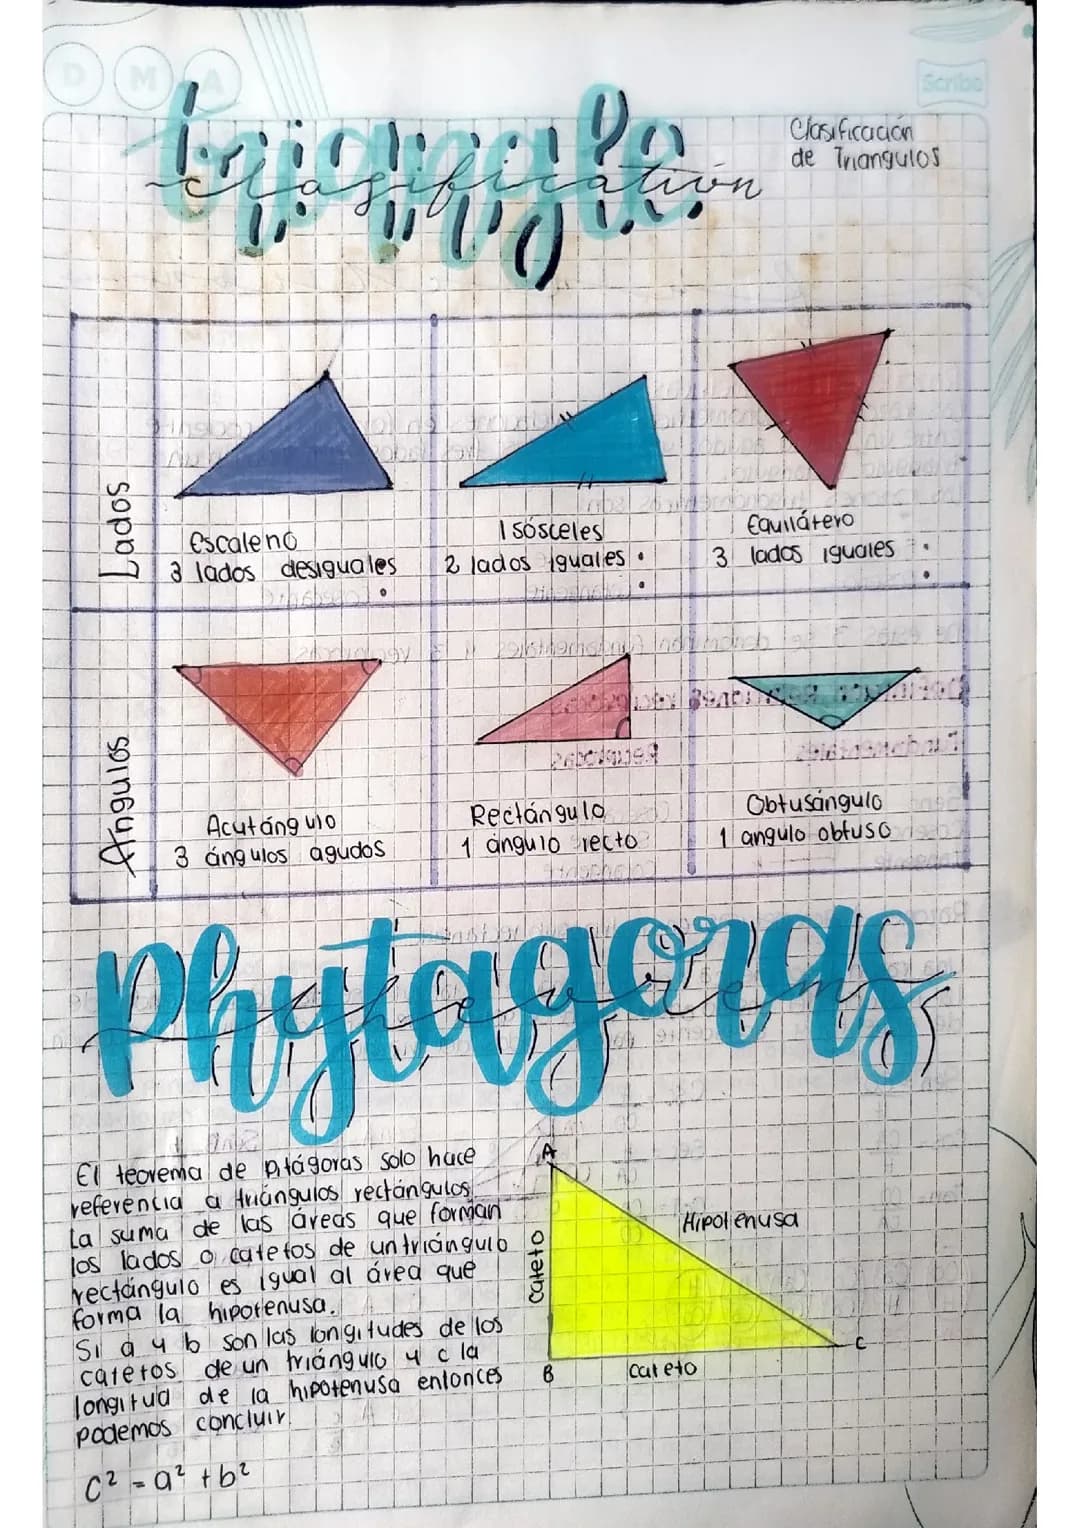 D M A
Scribe
triangle
clasification
Clasificación
de Triangulos
Lados
Escaleno
3 lados desiguales
Isósceles
2 lados iguales
Equilátero
3 lados iguales
Ángulos
Acutángulo
3 ángulos agudos
Rectángulo
1 ángulo recto
Obtusángulo
1 angulo obtuso
Phytagoras
El teorema de Pitágoras solo hace
referencia a triángulos rectángulos
La suma de las áreas que forman
los lados o catetos de un triángulo
rectángulo es igual al área que
forma la hipotenusa.
Si a y b son las longitudes de los
catetos de un triángulo y c la
longitud de la hipotenusa entonces
podemos concluir.
c² = a² + b²
A
Hipotenusa
Cateto
B
Cateto
C